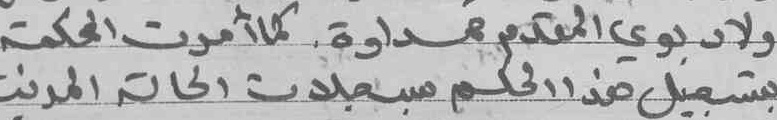 ولاد بوي المقدم عداوة. كما أمرت المحكمة
بتسجيل هذا الحكم بسجلات الحالة المدنية